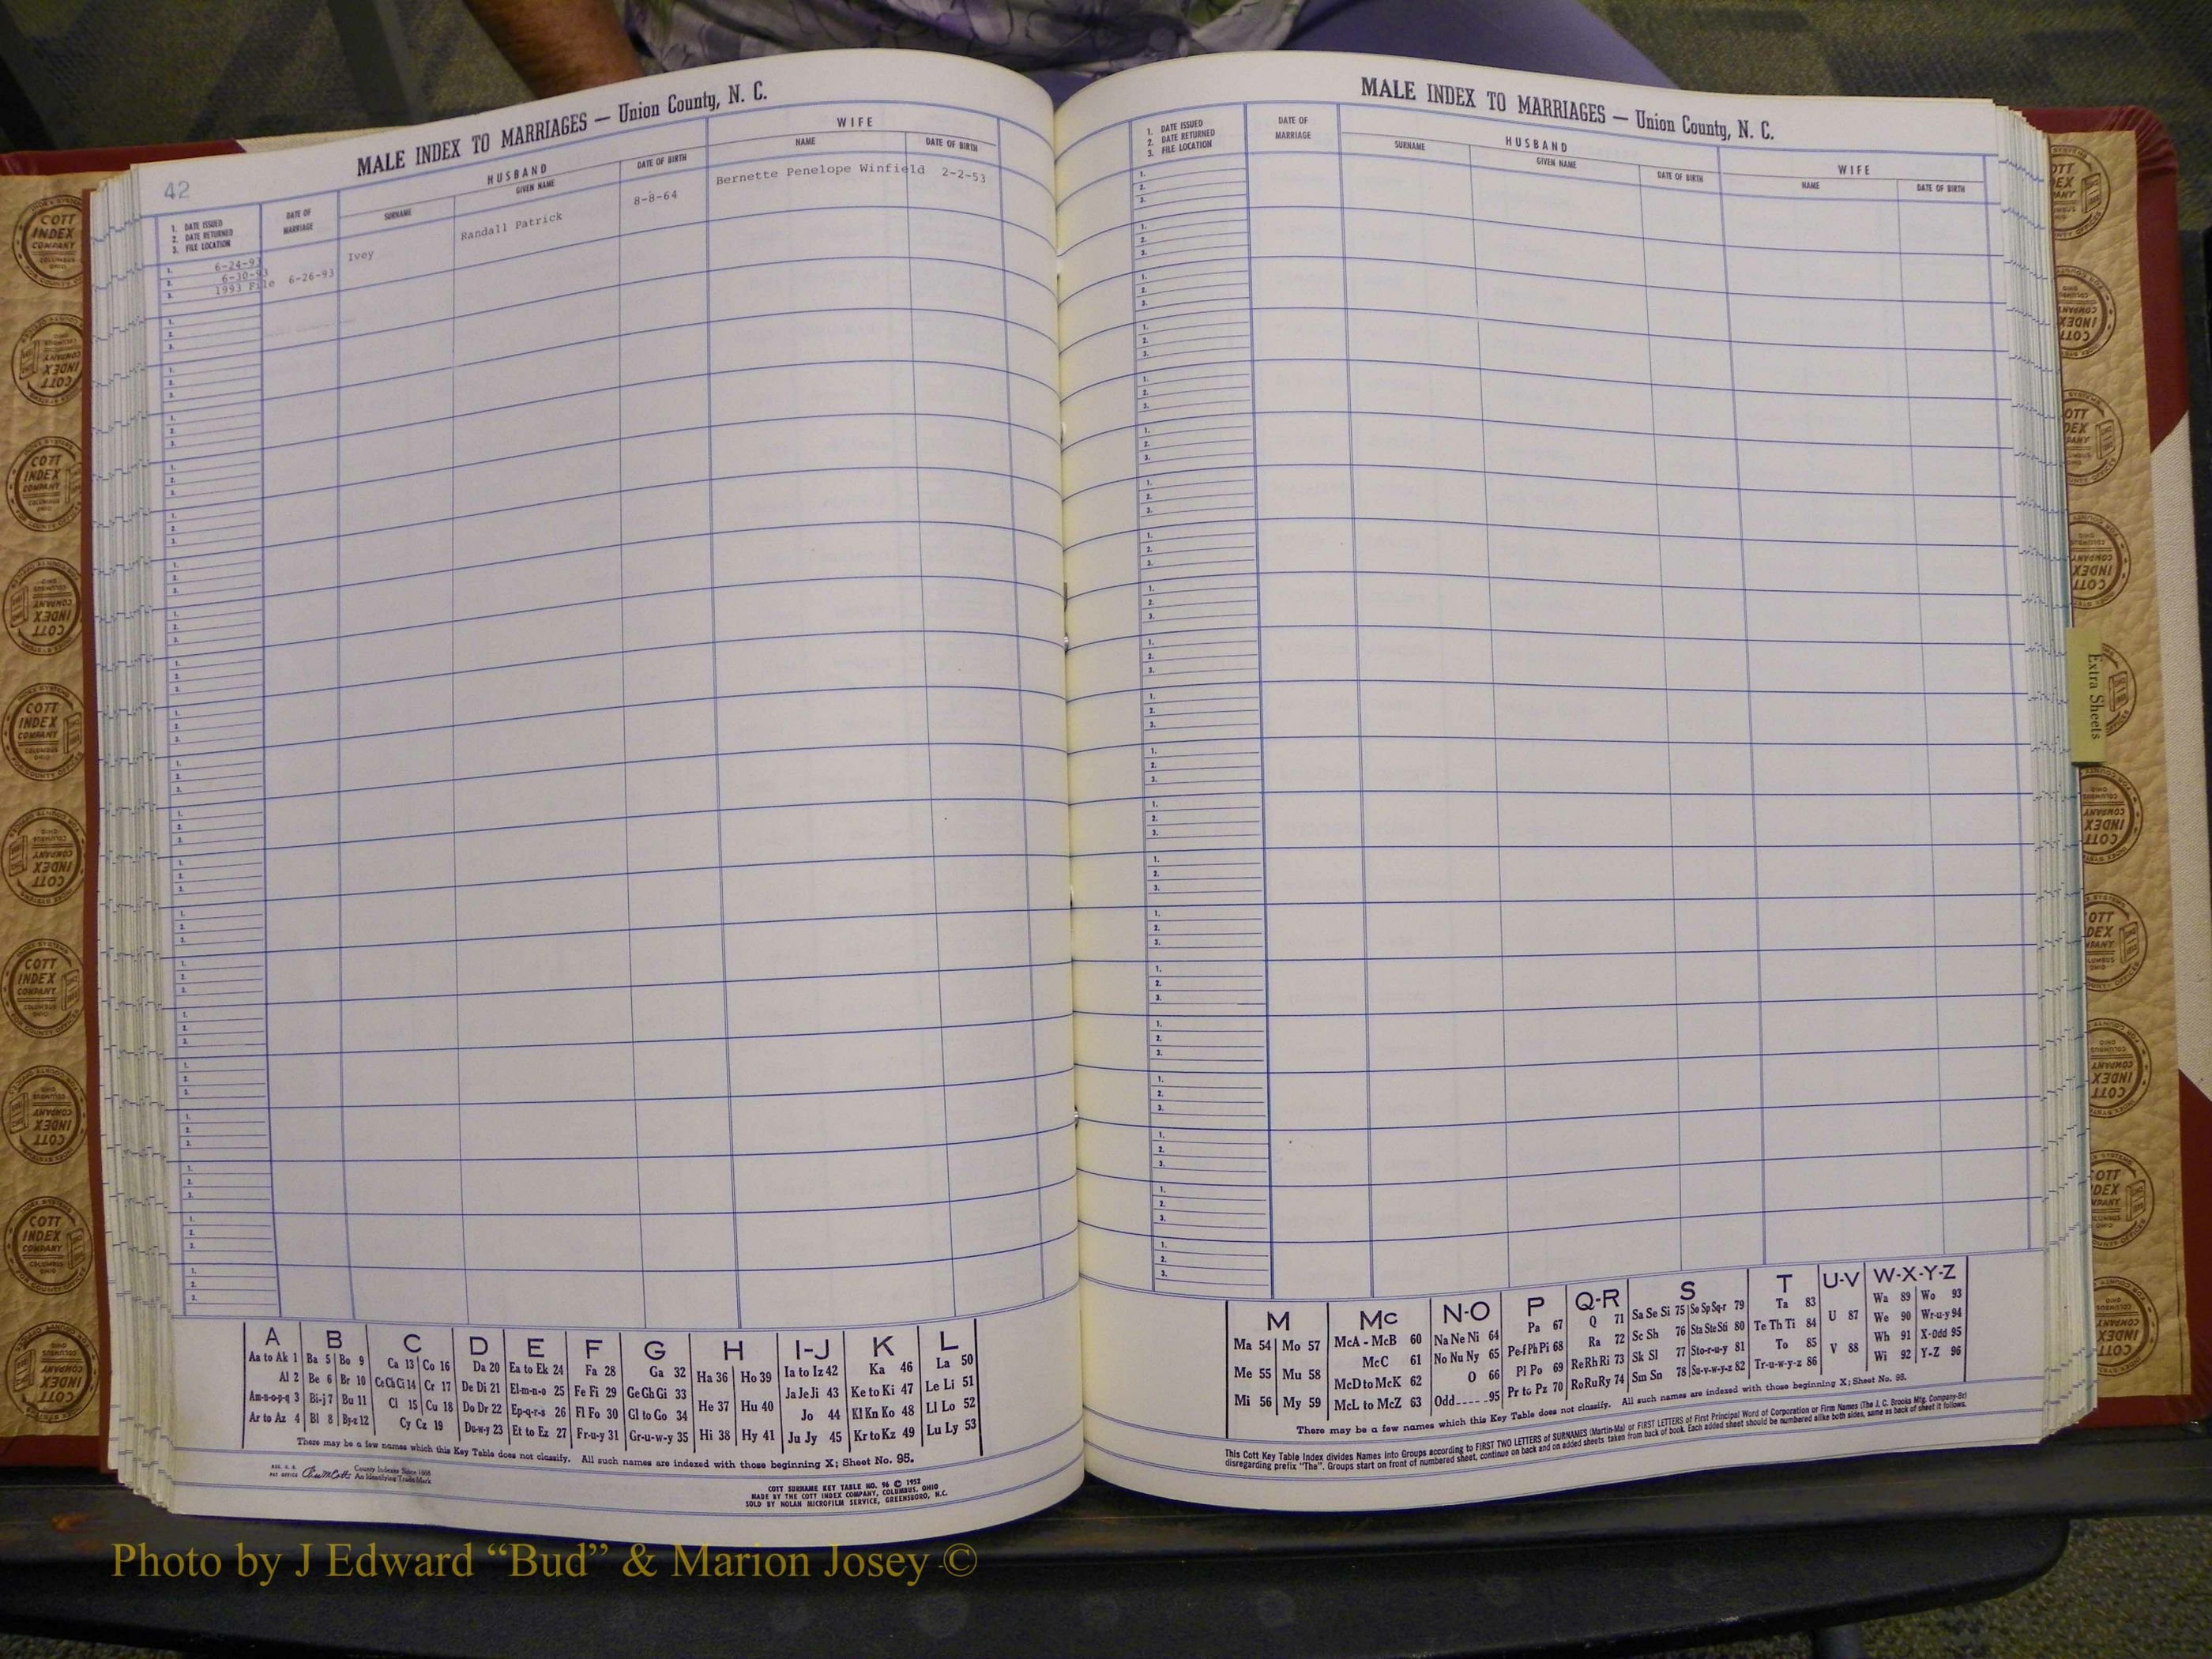 42
MALE INDEX TO MARRIAGES — Union County, N. C.
1. DATE ISSUED
2. DATE RETURNED
3. FILE LOCATION
DATE OF MARRIAGE
HUSBAND
SURNAME
GIVEN NAME
DATE OF BIRTH
WIFE
NAME
DATE OF BIRTH
1. 6-24-93
2. 6-30-93
3. 1993 File
6-26-93
Ivey
Randall Patrick
8-8-64
Bernette Penelope Winfield
2-2-53
A
Aa to Ak 1
Al 2
Am-n-o-p-q 3
Ar to Az 4
B
Ba 5 Bo 9
Be 6 Br 10
Bi-j 7 Bu 11
Bl 8 By-z 12
C
Ca 13 Co 16
Ce Ch Ci 14 Cr 17
Cl 15 Cu 18
Cy Cz 19
D
Da 20
De Di 21
Do Dr 22
Du-w-y 23
E
Ea to Ek 24
El-m-n-o 25
Ep-q-r-s 26
Et to Ez 27
F
Fa 28
Fe Fi 29
Fl Fo 30
Fr-u-y 31
G
Ga 32
Ge Gh Gi 33
Gl to Go 34
Gr-u-w-y 35
H
Ha 36 Ho 39
He 37 Hu 40
Hi 38 Hy 41
I-J
Ia to Iz 42
Ja Je Ji 43
Jo 44
Ju Jy 45
K
Ka 46
Ke to Ki 47
Kl Kn Ko 48
Kr to Kz 49
L
La 50
Le Li 51
Ll Lo 52
Lu Ly 53
There may be a few names which this Key Table does not classify. All such names are indexed with those beginning X; Sheet No. 95.
REG. U. S.
PAT. OFFICE
County Indexes Since 1888
An Identifying Trade Mark
COTT SURNAME KEY TABLE NO. 96 © 1952
MADE BY THE COTT INDEX COMPANY, COLUMBUS, OHIO
SOLD BY NOLAN MICROFILM SERVICE, GREENSBORO, N.C.
MALE INDEX TO MARRIAGES — Union County, N. C.
1. DATE ISSUED
2. DATE RETURNED
3. FILE LOCATION
DATE OF MARRIAGE
HUSBAND
SURNAME
GIVEN NAME
DATE OF BIRTH
WIFE
NAME
DATE OF BIRTH
Extra Sheets
M
Ma 54 Mo 57
Me 55 Mu 58
Mi 56 My 59
Mc
McA - McB 60
McC 61
McD to McK 62
McL to McZ 63
N-O
Na Ne Ni 64
No Nu Ny 65
O 66
Odd 95
P
Pa 67
Pe-f Ph Pi 68
Pl Po 69
Pr to Pz 70
Q-R
Q 71
Ra 72
Re Rh Ri 73
Ro Ru Ry 74
S
Sa Se Si 75 So Sp Sq-r 79
Sc Sh 76 Sta Ste Sti 80
Sk Sl 77 Sto-r-u-y 81
Sm Sn 78 Su-v-w-y-z 82
T
Ta 83
Te Th Ti 84
To 85
Tr-u-w-y-z 86
U-V
U 87
V 88
W-X-Y-Z
Wa 89 Wo 93
We 90 Wr-u-y 94
Wh 91 X-Odd 95
Wi 92 Y-Z 96
There may be a few names which this Key Table does not classify. All such names are indexed with those beginning X; Sheet No. 95.
This Cott Key Table Index divides Names into Groups according to FIRST TWO LETTERS of SURNAMES (Martin-Ma) or FIRST LETTERS of First Principal Word of Corporation or Firm Names (The J. C. Brooks Mfg. Company-Br)
disregarding prefix "The". Groups start on front of numbered sheet, continue on back and on added sheets taken from back of book. Each added sheet should be numbered alike both sides, same as back of sheet it follows.
COTT INDEX COMPANY
COLUMBUS OHIO
Photo by J Edward “Bud” & Marion Josey ©